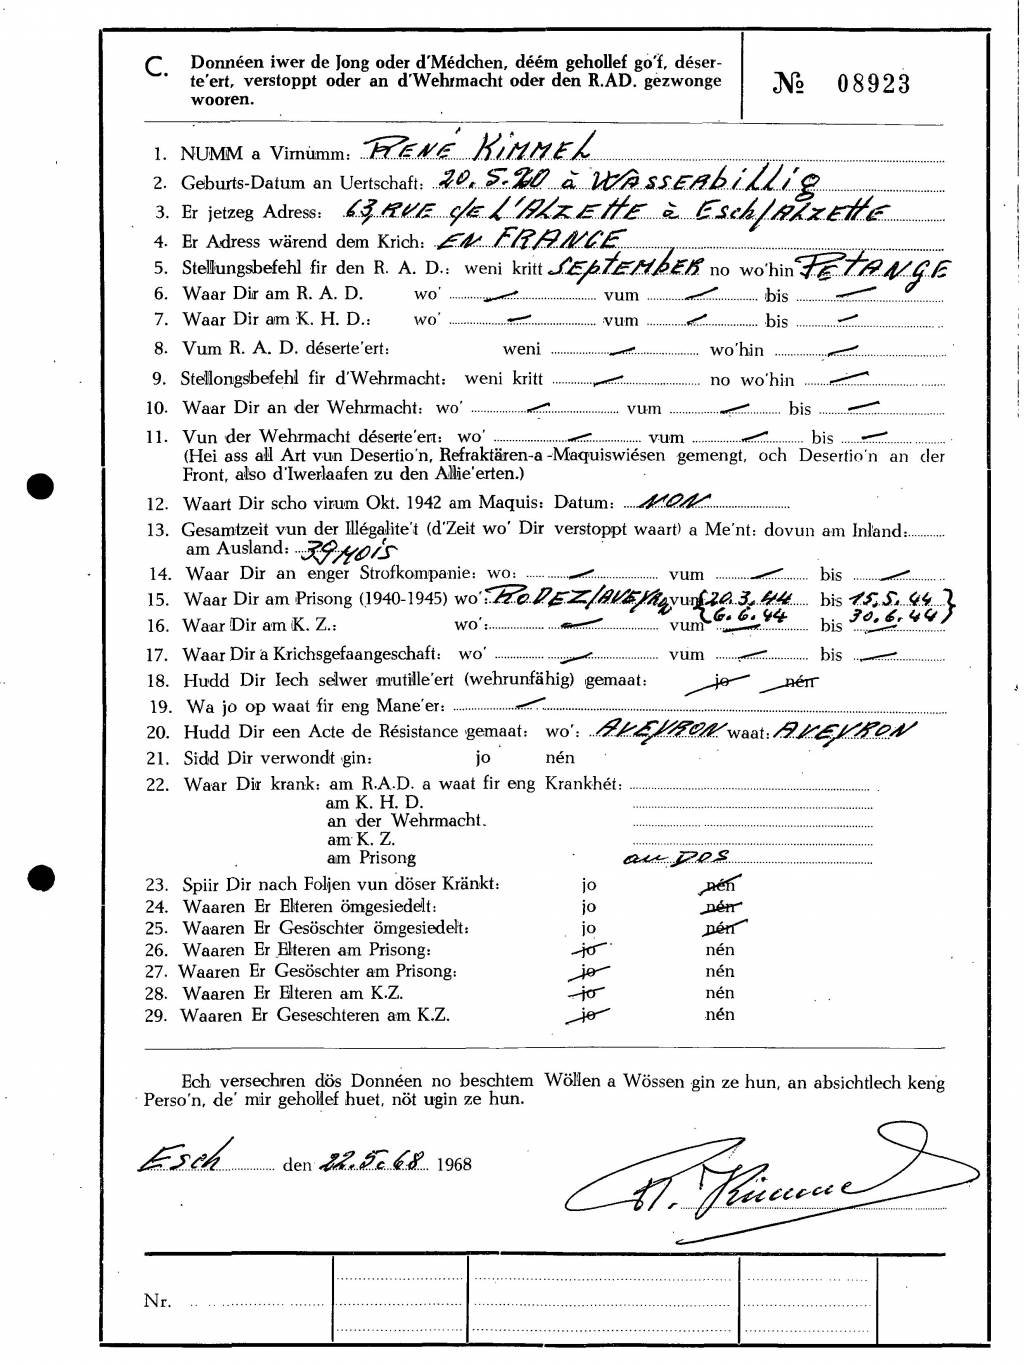 C. Donnéen iwer de Jong oder d'Médchen, déém gehollef go'f, déser-
te'ert, verstoppt oder an d'Wehrmacht oder den R.AD. gezwonge
wooren.
№ 08923
1. NUMM a Virnumm: RENÉ KIMMEL
2. Geburts-Datum an Uertschaft: 20.5.20 à WASSERbillig
3. Er jetzeg Adress: 63, RUE de L'AlZETTE à Esch/AlZETTE
4. Er Adress wärend dem Krich: EN FRANCE
5. Stellungsbefehl fir den R. A. D.: weni kritt SEPTEMBER no wo'hin PETANGE
6. Waar Dir am R. A. D. wo' — vum — bis —
7. Waar Dir am K. H. D.: wo' — vum — bis —
8. Vum R. A. D. déserte'ert: weni — wo'hin —
9. Stellongsbefehl fir d'Wehrmacht: weni kritt — no wo'hin —
10. Waar Dir an der Wehrmacht: wo' — vum — bis —
11. Vun der Wehrmacht déserte'ert: wo' — vum — bis —
(Hei ass all Art vun Desertio'n, Refraktären-a -Maquiswiésen gemengt, och Desertio'n an der
Front, also d'Iwerlaafen zu den Allie'erten.)
12. Waart Dir scho virum Okt. 1942 am Maquis: Datum: NON
13. Gesamtzeit vun der Illégalite't (d'Zeit wo' Dir verstoppt waart) a Me'nt: dovun am Inland:
am Ausland: 39 MOIS
14. Waar Dir an enger Strofkompanie: wo: — vum — bis —
15. Waar Dir am Prisong (1940-1945) wo': RODEZ/AVEYRON vum {20.3.44 bis 15.5.44}
{6.6.44 30.6.44}
16. Waar Dir am K. Z.: wo': — vum — bis —
17. Waar Dir a Krichsgefaangeschaft: wo' — vum — bis —
18. Hudd Dir Iech selwer mutille'ert (wehrunfähig) gemaat: jo nén
19. Wa jo op waat fir eng Mane'er: —
20. Hudd Dir een Acte de Résistance gemaat: wo': AVEYRON waat: AVEYRON
21. Sidd Dir verwondt gin: jo nén
22. Waar Dir krank: am R.A.D. a waat fir eng Krankhét:
am K. H. D.
an der Wehrmacht.
am K. Z.
am Prisong au DOS
23. Spiir Dir nach Foljen vun döser Kränkt: jo nén
24. Waaren Er Elteren ömgesiedelt: jo nén
25. Waaren Er Gesöschter ömgesiedelt: jo nén
26. Waaren Er Elteren am Prisong: jo nén
27. Waaren Er Gesöschter am Prisong: jo nén
28. Waaren Er Elteren am K.Z. jo nén
29. Waaren Er Geseschteren am K.Z. jo nén
Ech versechren dös Donnéen no beschtem Wöllen a Wössen gin ze hun, an absichtlech keng
Perso'n, de' mir gehollef huet, nöt ugin ze hun.
Esch den 22.5.68 1968
R. Kimmel
Nr.